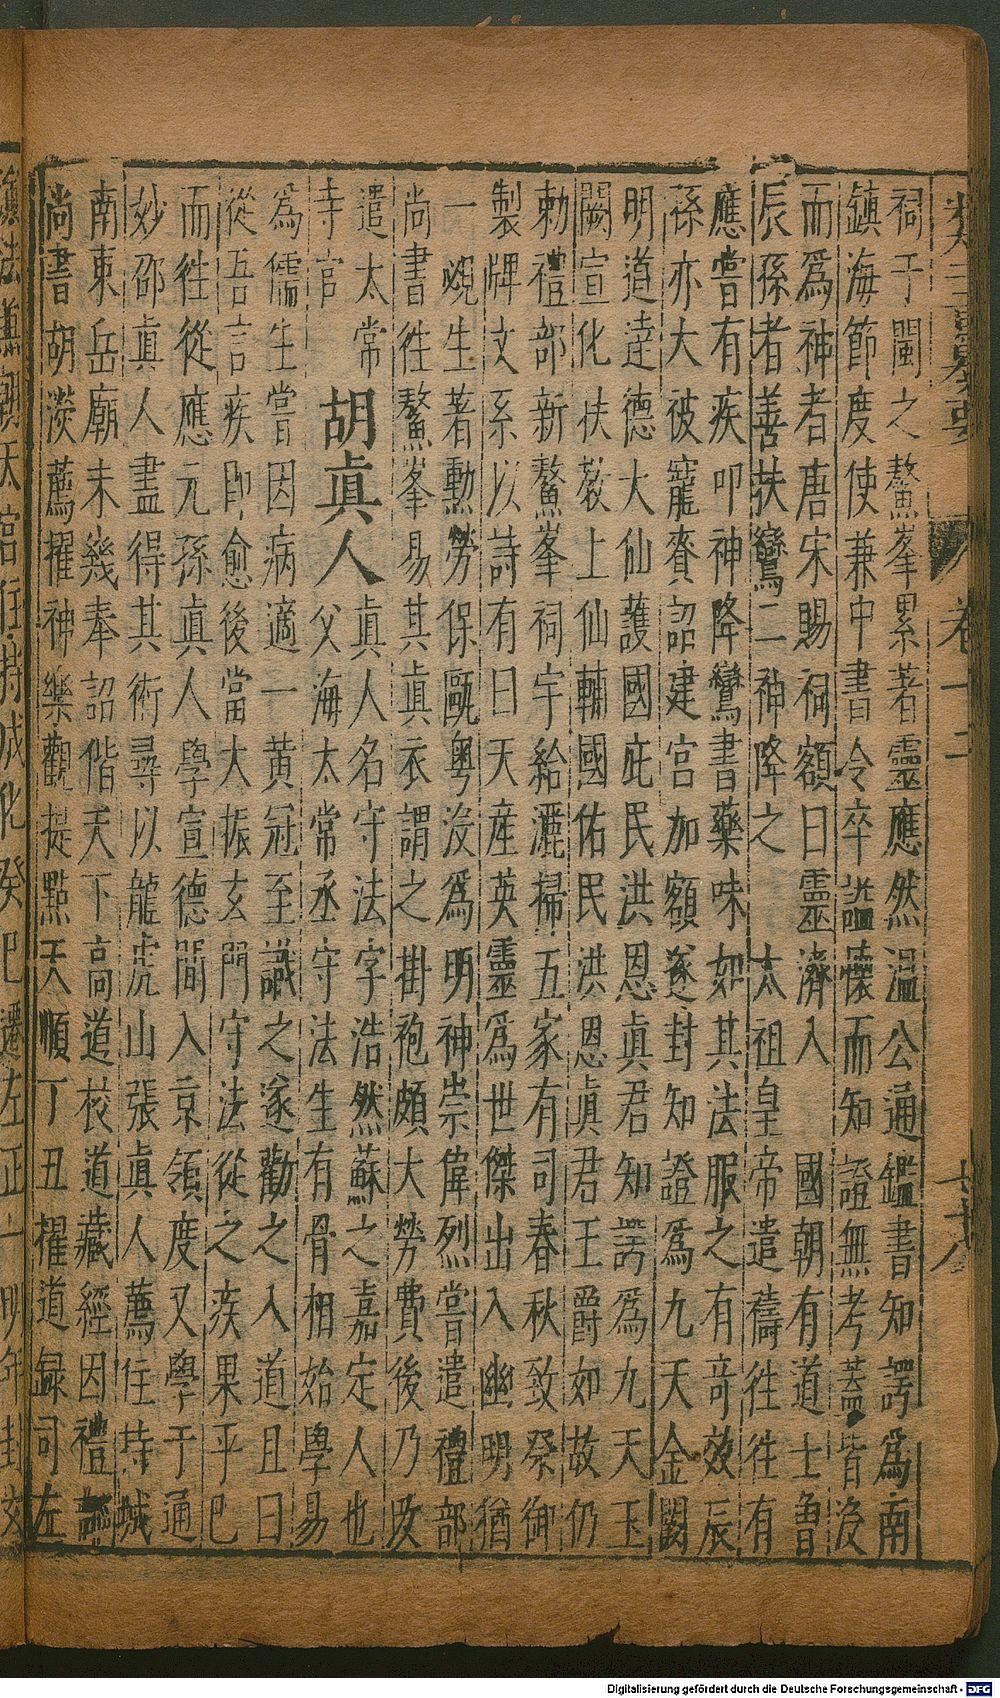 祠于閩之鰲峯累著靈應然溫公通鑑書知諤爲南
鎮海節度使兼中書令卒諡懷而知證無考蓋皆沒
而爲神者唐宋賜祠額曰靈濟入 國朝有道士魯
辰孫者善扶鸞二神降之 太祖皇帝遣禱徃徃有
應嘗有疾叩神降鸞書藥味如其法服之有奇效辰
孫亦大被寵賚詔建宮加額遂封知證爲九天金闕
明道達德大仙護國庇民洪恩眞君知諤爲九天玉
闕宣化扶敎上仙輔國佑民洪恩眞君王爵如故仍
勅禮部新鰲峯祠宇給灑掃五家有司春秋致祭御
製牌文系以詩有曰天產英靈爲世傑出入幽明猶
一覕生著勳勞保甌粤沒爲明神崇偉烈嘗遣禮部
尚書徃鰲峯易其眞衣謂之掛袍頗大勞費後乃改
遣太常寺官
胡眞人 眞人名守法字浩然蘇之嘉定人也
父海太常丞守法生有骨相始學易
爲儒生嘗因病適一黃冠至識之遂勸之入道且曰
從吾言疾即愈後當大振玄門守法從之疾果乎巳
而徃從應元孫眞人學宣德間入京領度又學于通
妙邵眞人盡得其術尋以龍虎山張眞人薦住持城
南東岳廟未幾奉詔偕天下高道校道藏經因禮部
尚書胡濙薦擢神樂觀提點天順丁丑擢道録司左
卷十二
七十八
朝天宮住持成化癸巳遷左正一明年封
Digitalisierung gefördert durch die Deutsche Forschungsgemeinschaft - DFG